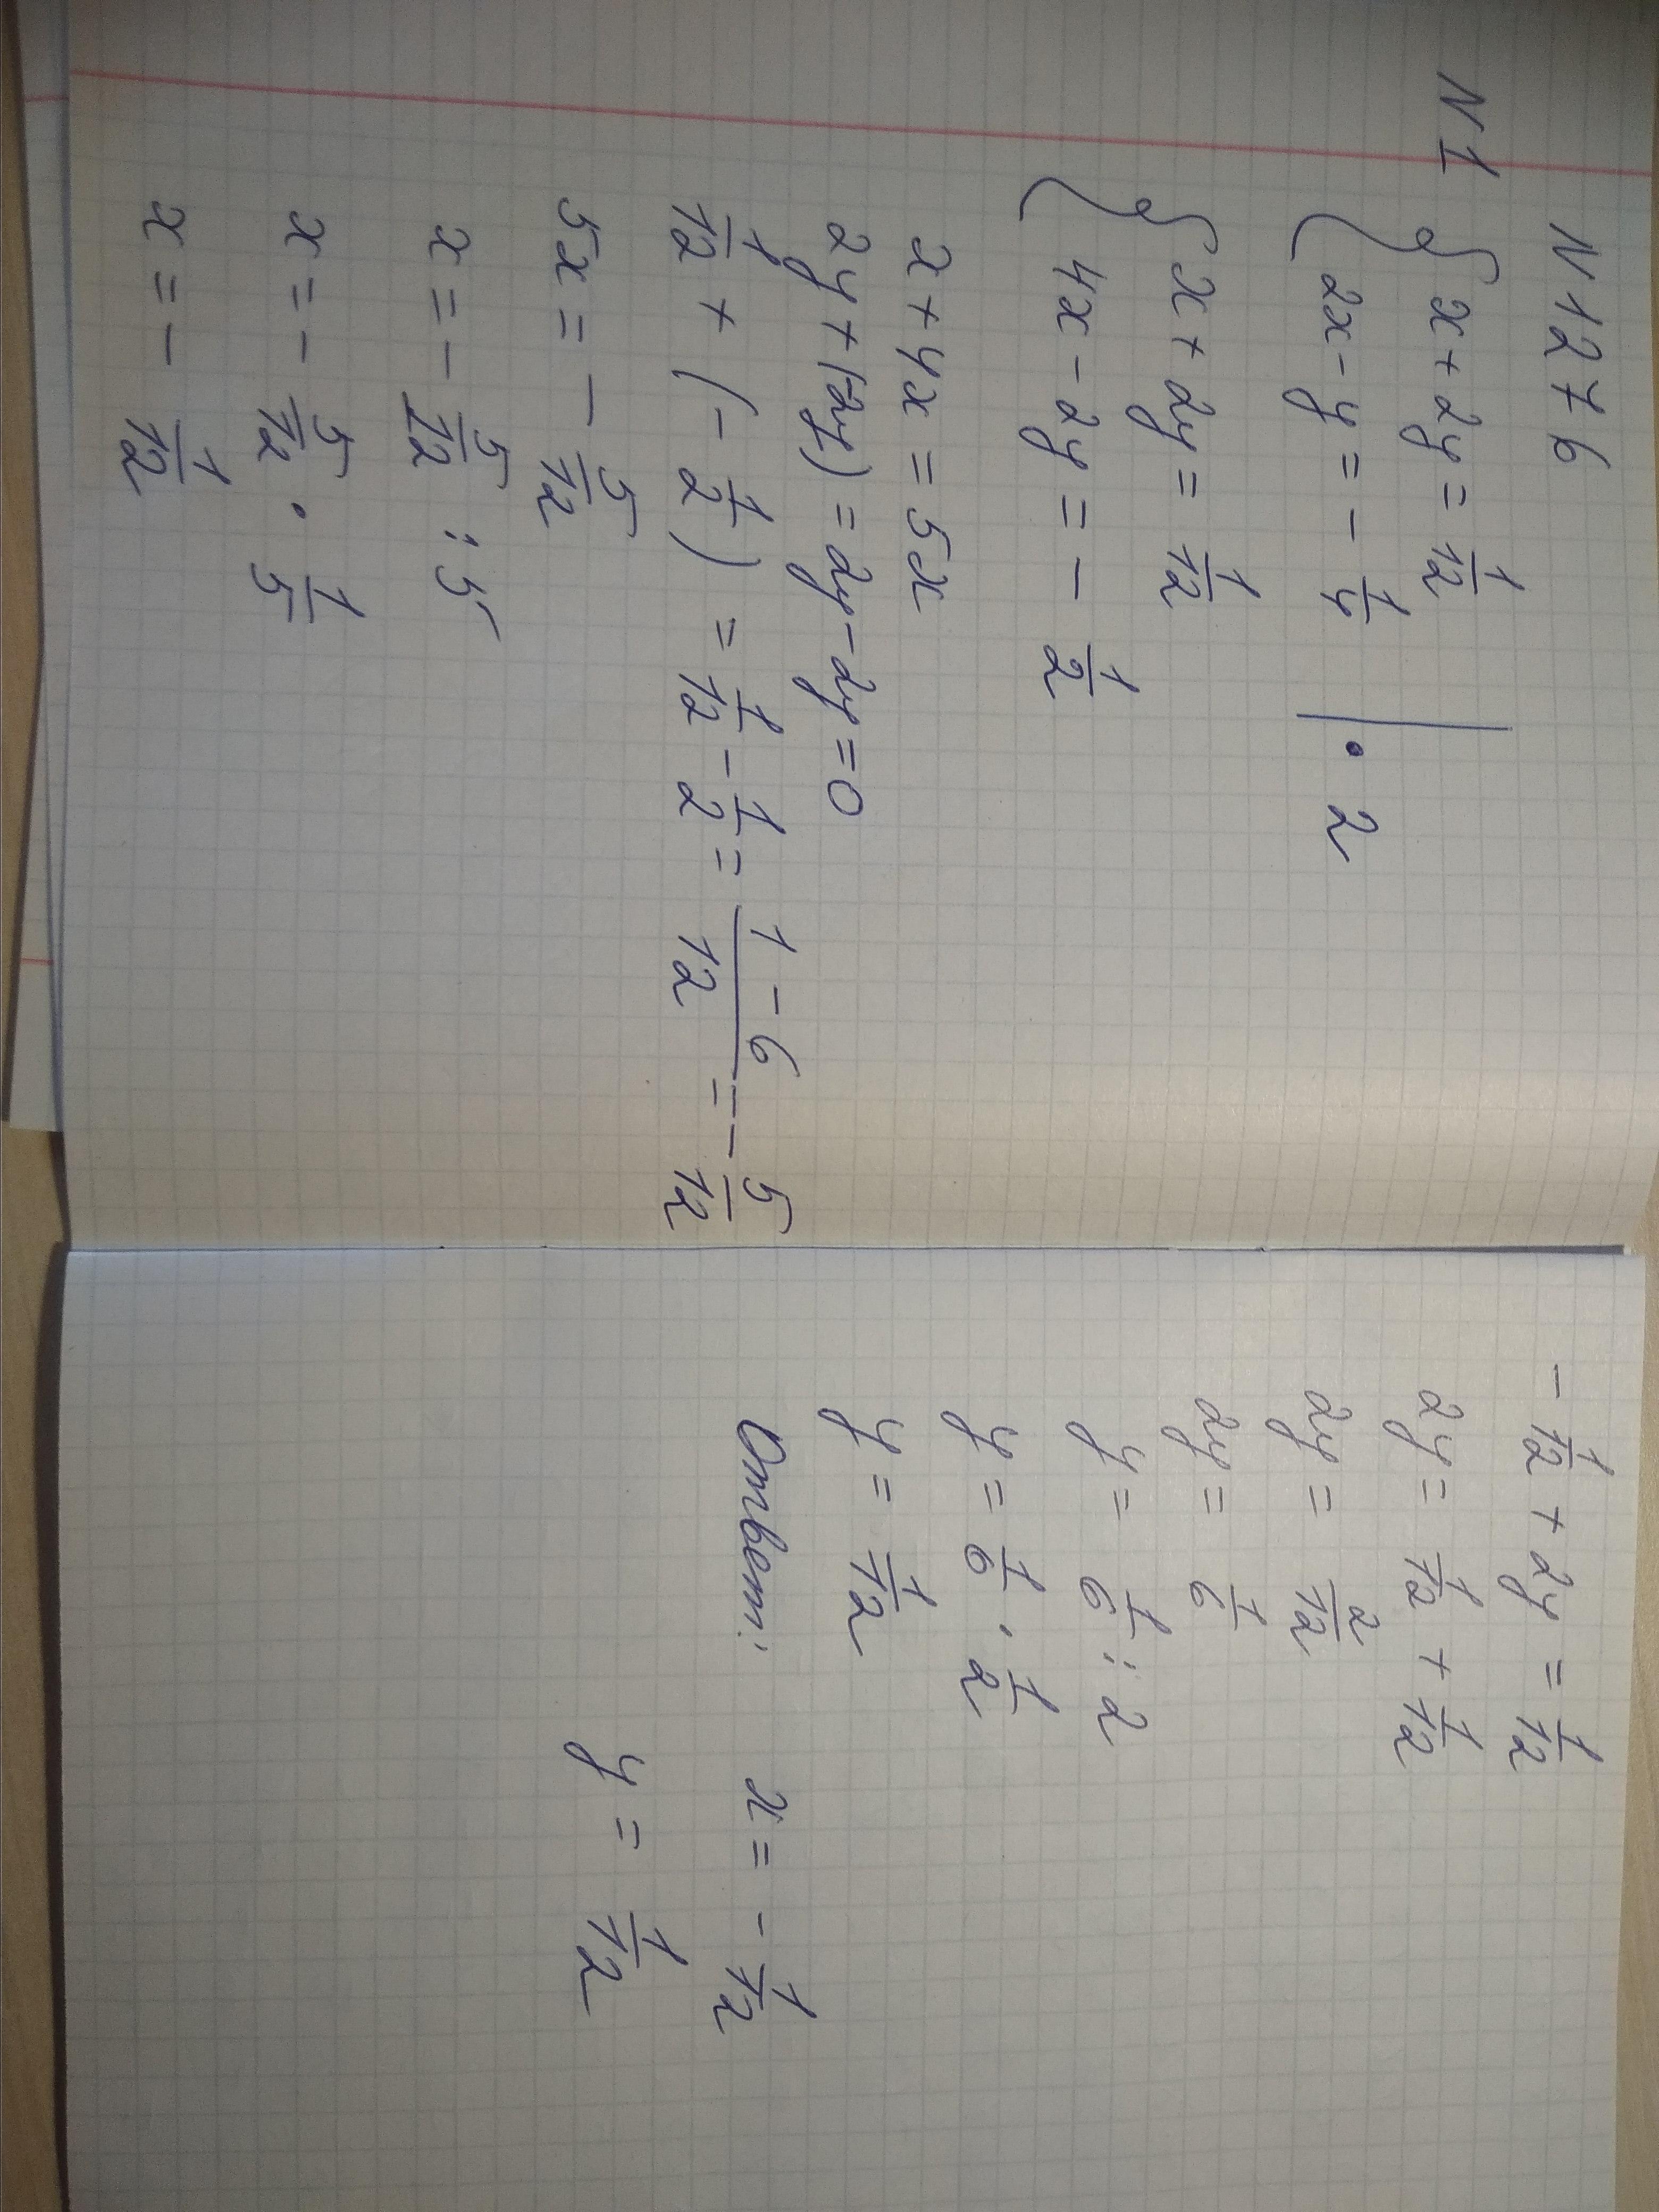 N 1276
N1 { x + 2y = 1/12
2x - y = - 1/4 | · 2
{ x + 2y = 1/12
4x - 2y = - 1/2
x + 4x = 5x
2y + (-2y) = 2y - 2y = 0
1/12 + (- 1/2) = 1/12 - 1/2 = (1 - 6)/12 = - 5/12
5x = - 5/12
x = - 5/12 : 5
x = - 5/12 · 1/5
x = - 1/12
- 1/12 + 2y = 1/12
2y = 1/12 + 1/12
2y = 2/12
2y = 1/6
y = 1/6 : 2
y = 1/6 · 1/2
y = 1/12
Ответ: x = - 1/12
y = 1/12